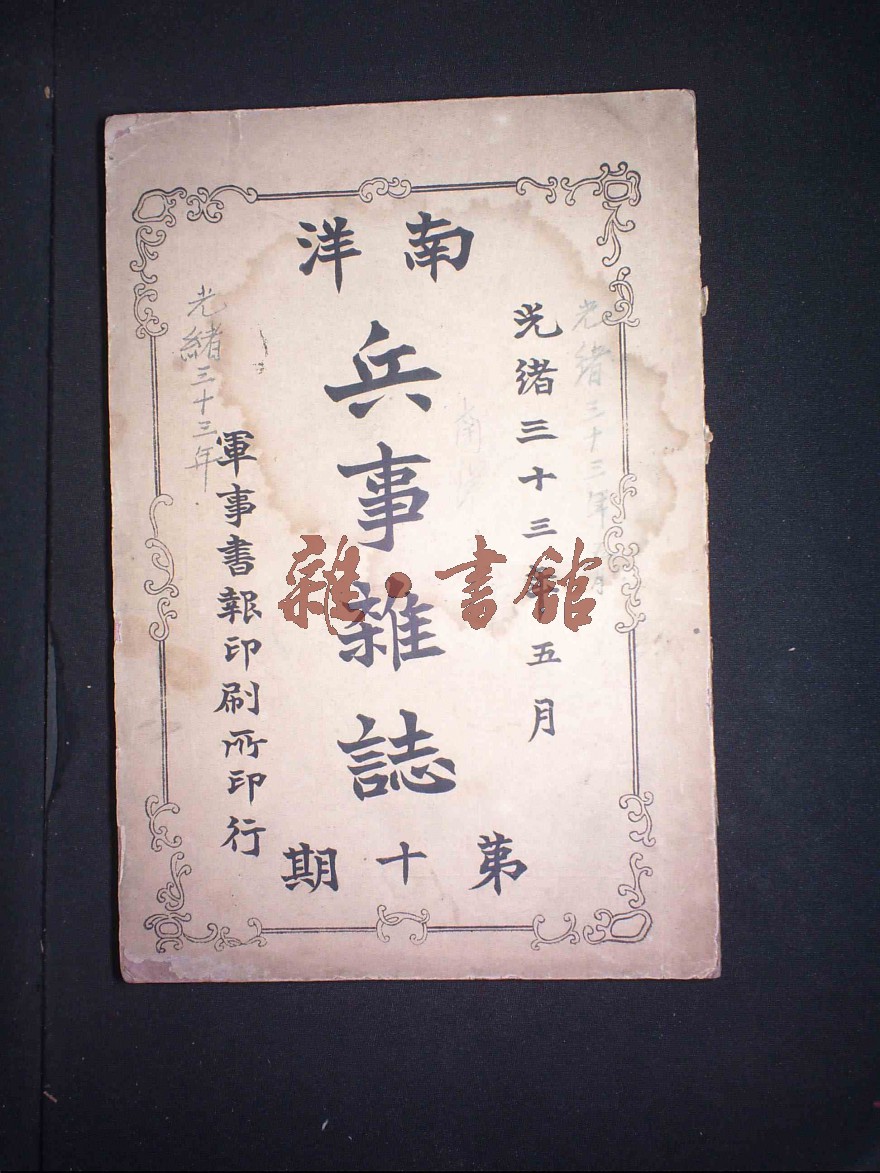 南洋
光緒三十三年五月
兵事雜誌
軍事書報印刷所印行
第十期
光緒三十三年
光緒三十三年
南洋
雜·書館